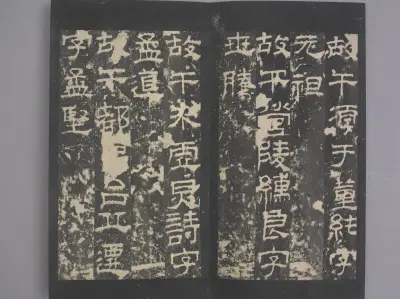 故午淳于董純字
元祖
故午營陵繻良字
世騰
故午朱虛炅詩字
孟道
故午都昌台丘遷
字孟堅